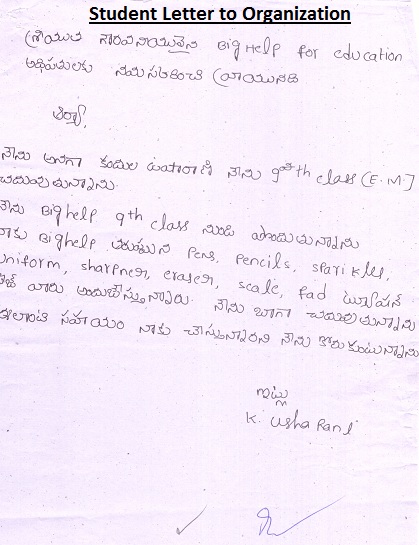 Student Letter to Organization
శ్రీయుత గౌరవనీయులైన Big Help for education
అధిపతులకు నమస్కరించి వ్రాయునది
ఆర్యా,
నేను అనగా కందుల ఉషారాణి నేను 9th class (E.M.)
చదువుతున్నాను.
నేను Big help 9th class నుండి పొందుతున్నాను
నాకు Big help తరుపున Pens, Pencils,
uniform, sharpner, eraser, scale, Pad ట్యూషన్
ఫీజు వారు అందుచేస్తున్నారు. నేను బాగా చదువుతున్నాను
ఇలాంటి సహాయం నాకు చేస్తున్నారని నేను కోరుకుంటున్నాను
ఇట్లు
K. Usha Rani